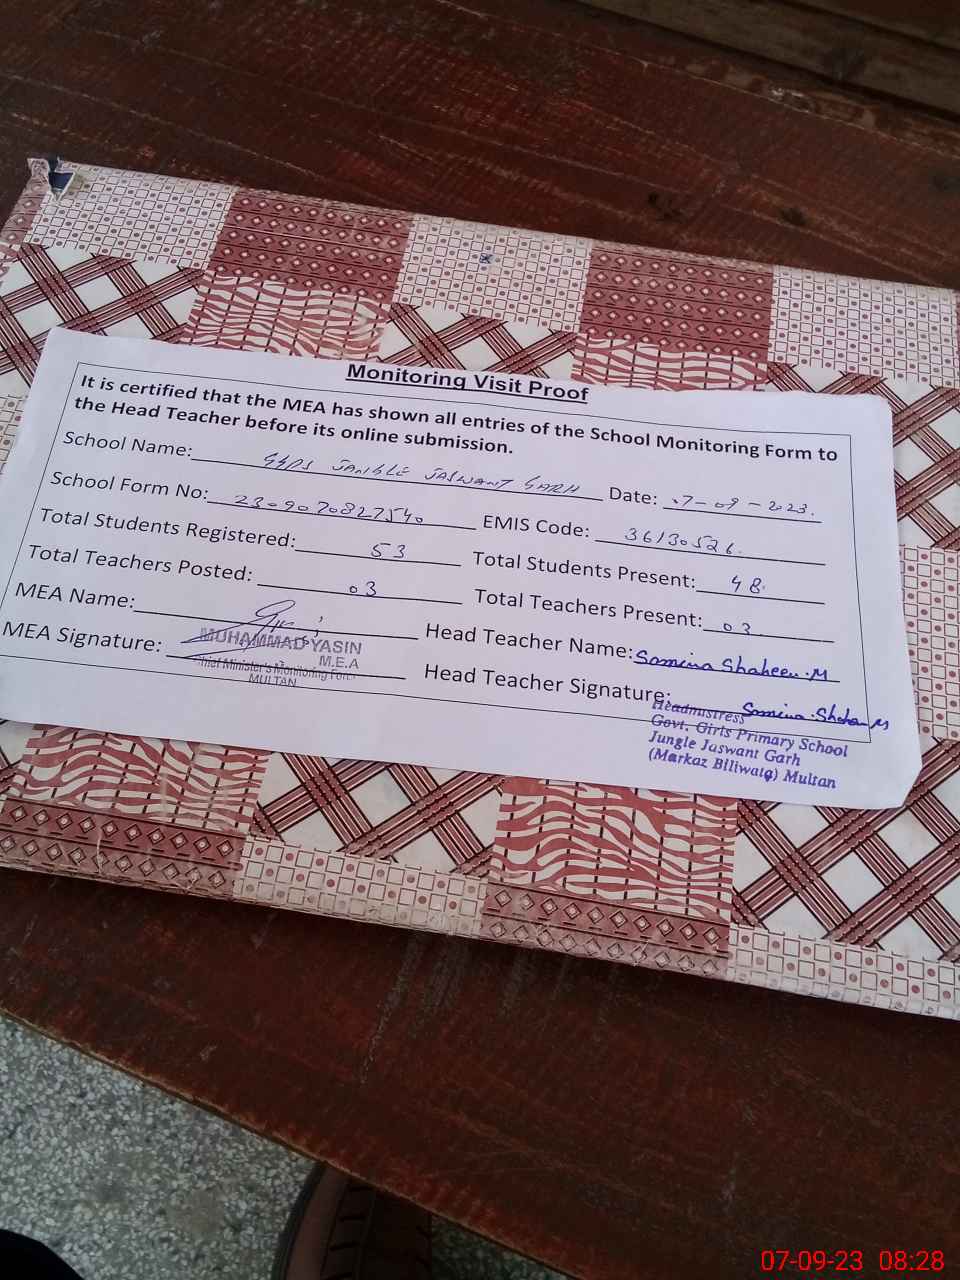 Monitoring Visit Proof
It is certified that the MEA has shown all entries of the School Monitoring Form to
the Head Teacher before its online submission.
School Name: GGPS JANGLE JASWANT GARH Date: 07-09-2023.
School Form No: 2309070827540 EMIS Code: 36130526.
Total Students Registered: 53 Total Students Present: 48.
Total Teachers Posted: 03 Total Teachers Present: 03
MEA Name: Head Teacher Name: Samina Shaheen.M
MEA Signature: Head Teacher Signature: Samina.Shaheen M
MUHAMMAD YASIN
M.E.A
Chief Minister's Monitoring Force
MULTAN
Headmistress
Govt. Girls Primary School
Jungle Jaswant Garh
(Markaz Biliwala) Multan
07-09-23 08:28